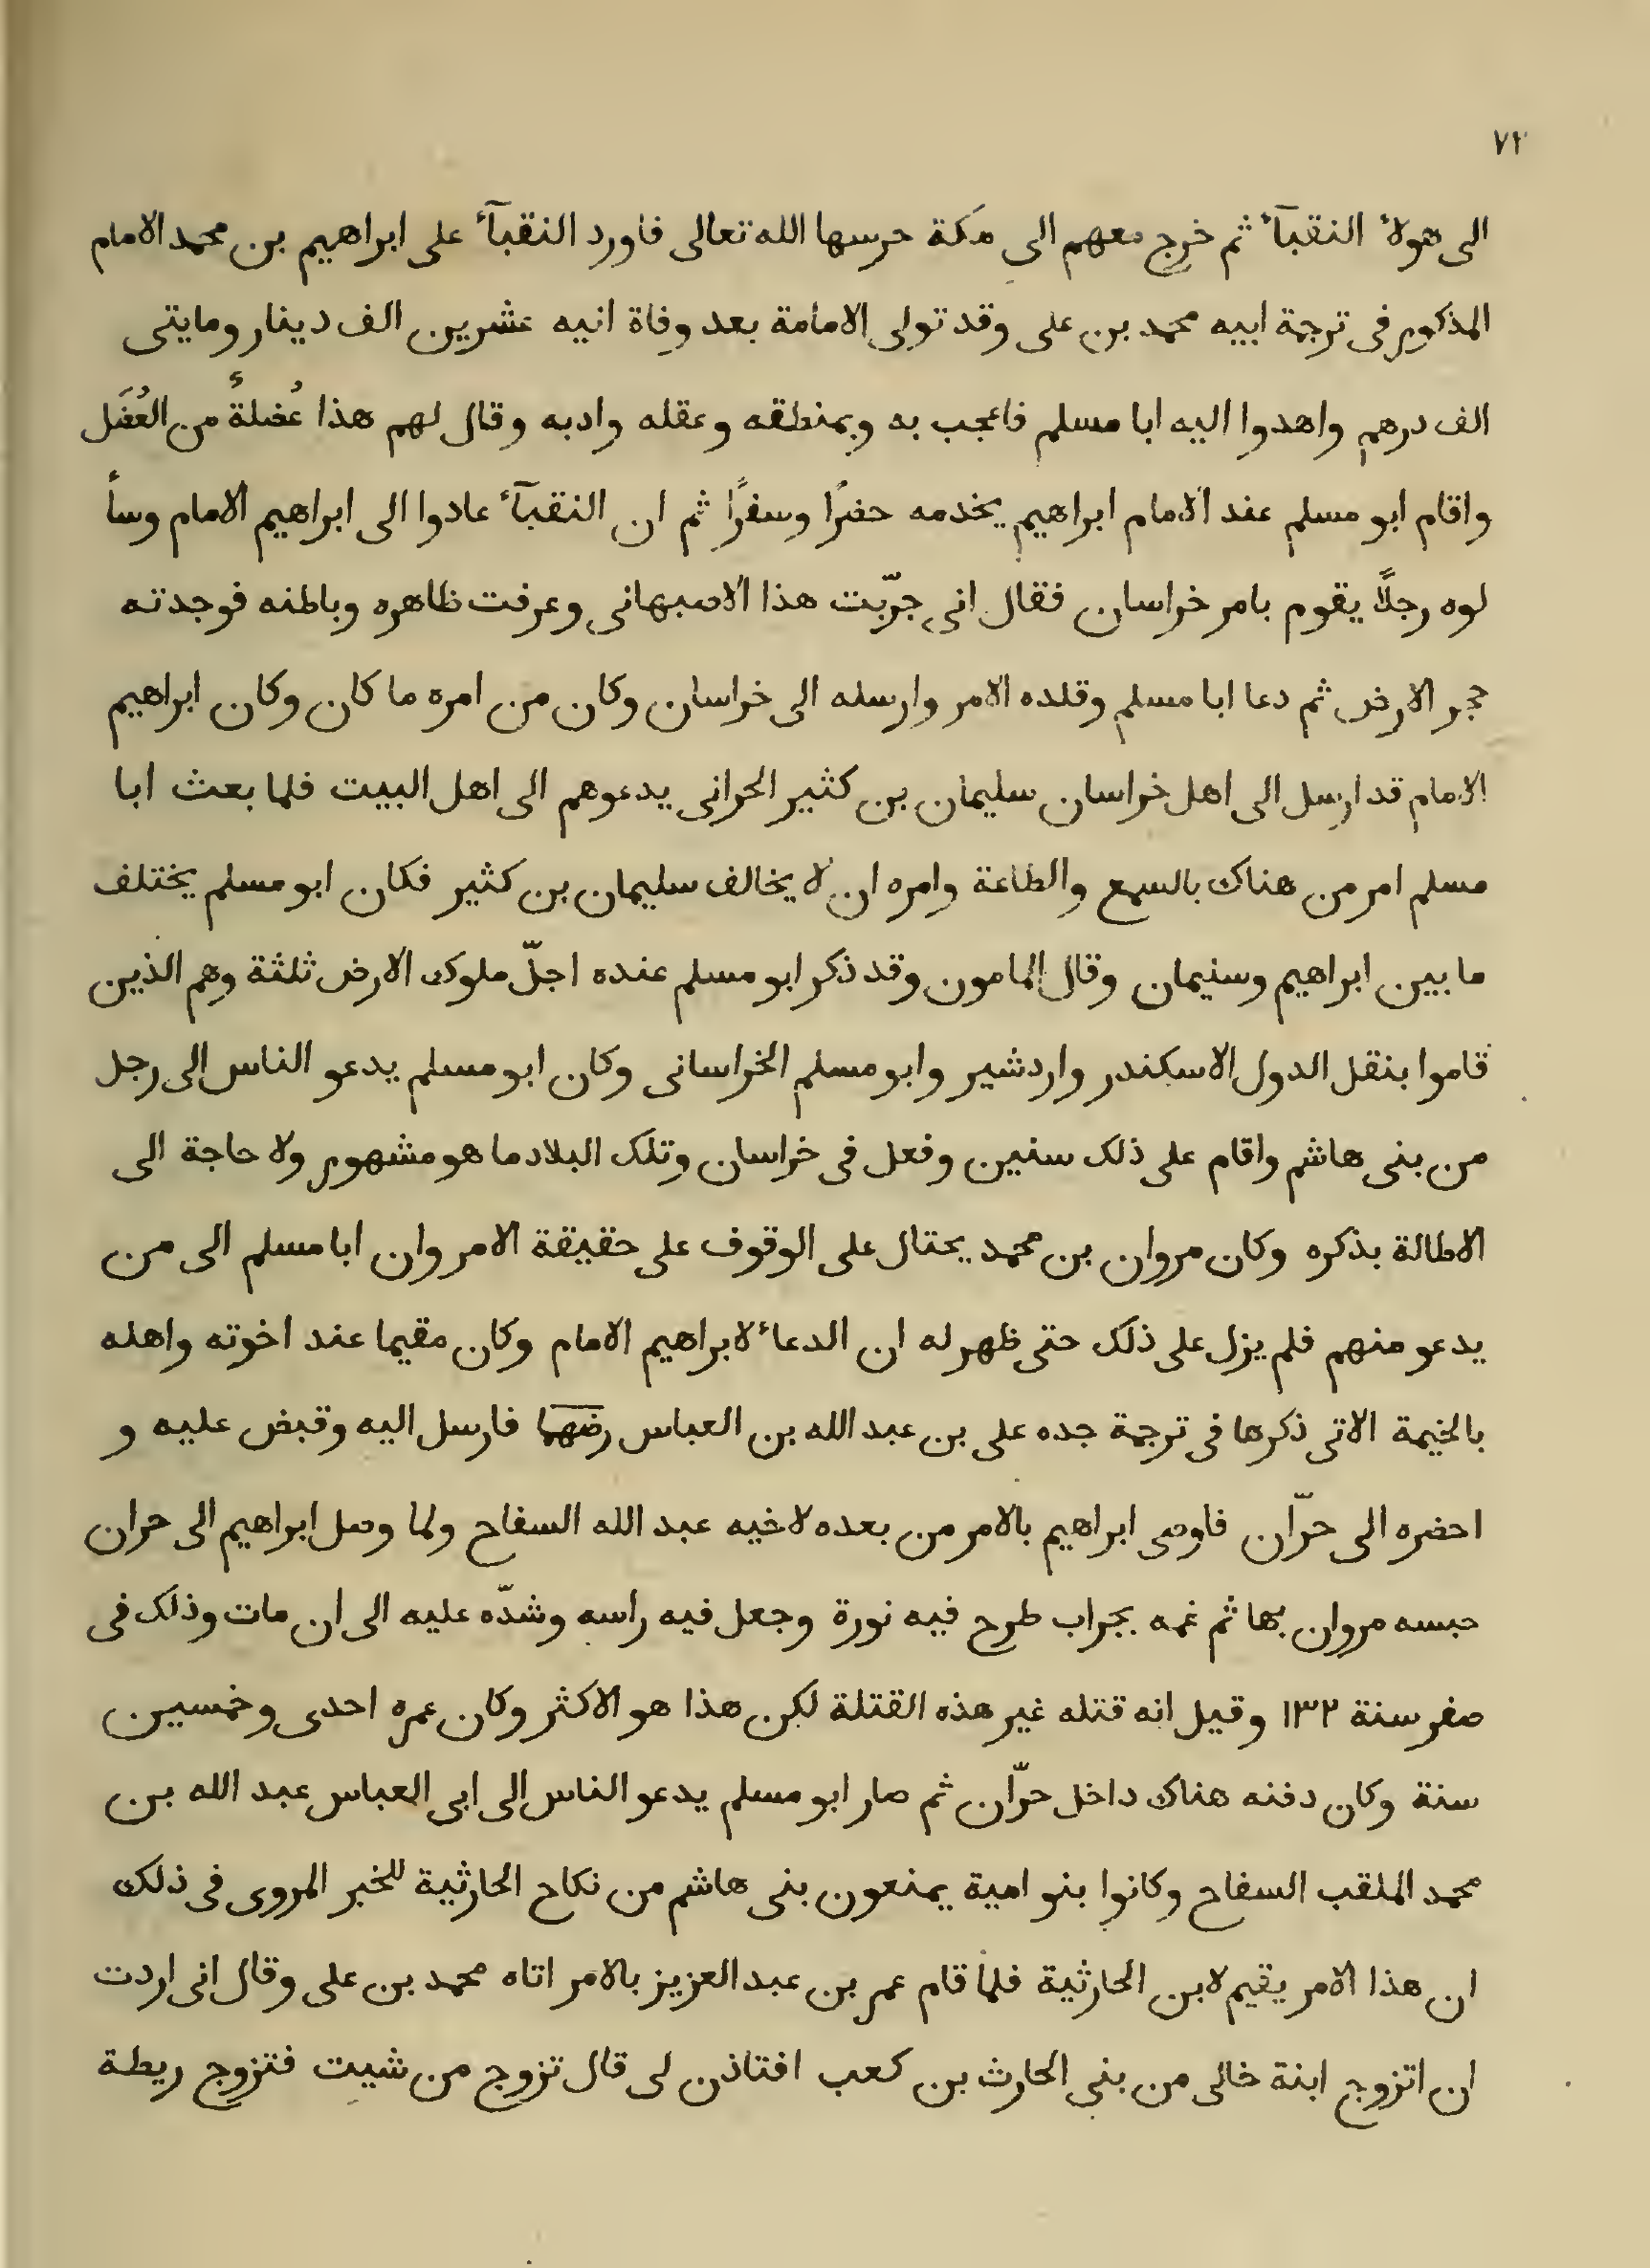 ٧٢
الى هولاء النقبآء ثم خرج معهم الى مكة حرسها الله تعالى فاورد النقبآء على ابراهيم بن محمد الامام
المذكور فى ترجمة ابيه محمد بن على وقد تولى الامامة بعد وفاة ابيه عشرين الف دينار ومايتى
الف درهم واهدوا اليه ابا مسلم فاعجب به وبمنطقه وعقله وادبه وقال لهم هذا عُضلةٌ من العُضَل
واقام ابو مسلم عند الامام ابراهيم يخدمه حضرًا وسفرًا ثم ان النقبآء عادوا الى ابراهيم الامام وسأ
لوه رجلًا يقوم بامر خراسان فقال انى جرّبت هذا الاصبهانى وعرفت ظاهره وباطنه فوجدته
حجر الارض ثم دعا ابا مسلم وقلده الامر وارسله الى خراسان وكان من امره ما كان وكان ابراهيم
الامام قد ارسل الى اهل خراسان سليمان بن كثير الحرانى يدعوهم الى اهل البيت فلما بعث ابا
مسلم امر من هناك بالسمع والطاعة وامره ان لا يخالف سليمان بن كثير فكان ابو مسلم يختلف
ما بين ابراهيم وسليمان وقال المامون وقد ذكر ابو مسلم عنده اجلّ ملوك الارض ثلثة وهم الذين
قاموا بنقل الدول الاسكندر واردشير وابو مسلم الخراسانى وكان ابو مسلم يدعو الناس الى رجل
من بنى هاشم واقام على ذلك سنين وفعل فى خراسان وتلك البلاد ما هو مشهور ولا حاجة الى
الاطالة بذكره وكان مروان بن محمد يحتال على الوقوف على حقيقة الامر وان ابا مسلم الى من
يدعو منهم فلم يزل على ذلك حتى ظهر له ان الدعاء لابراهيم الامام وكان مقيما عند اخوته واهله
بالخيمة الاتى ذكرها فى ترجمة جده على بن عبد الله بن العباس رضهما فارسل اليه وقبض عليه و
احضره الى حرّان فاوصى ابراهيم بالامر من بعده لاخيه عبد الله السفاح ولما وصل ابراهيم الى حران
حبسه مروان بها ثم غمه بجراب طرح فيه نورة وجعل فيه راسه وشدّه عليه الى ان مات وذلك فى
صفر سنة ١٣٢ وقيل انه قتله غير هذه القتلة لكن هذا هو الاكثر وكان عمره احدى وخمسين
سنة وكان دفنه هناك داخل حرّان ثم صار ابو مسلم يدعو الناس الى ابى العباس عبد الله بن
محمد الملقب السفاح وكانوا بنو امية يمنعون بنى هاشم من نكاح الحارثية للخبر المروى فى ذلك
ان هذا الامر يقيم لابن الحارثية فلما قام عمر بن عبد العزيز بالامر اتاه محمد بن على وقال انى اردت
ان اتزوج ابنة خالى من بنى الحارث بن كعب افتاذن لى قال تزوج من شيت فتزوج ريطة